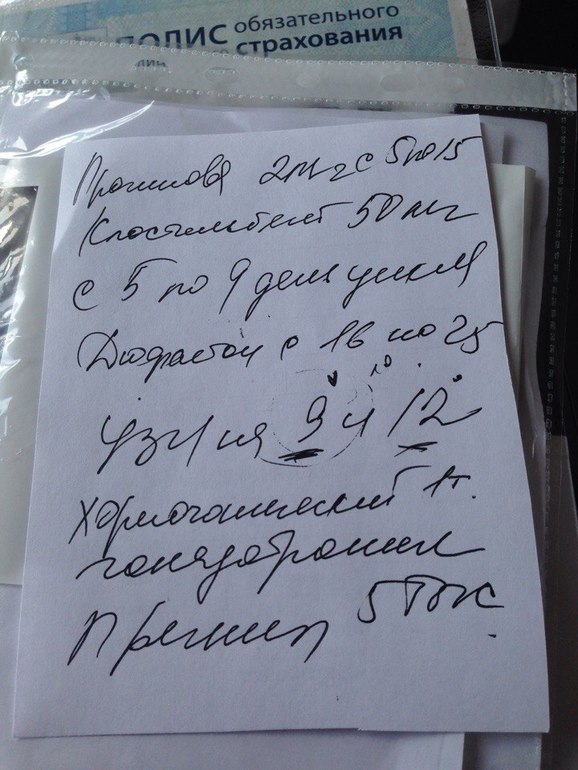 ПОЛИС обязательного
страхования
Прогинова 2мг с 5 по 15
Клостилбегит 50 мг
с 5 по 9 день цикла
Дюфастон с 16 по 25
УЗИ на 9 и 12
10
Хорионический
гонадотропин
Прегнил 5 тыс